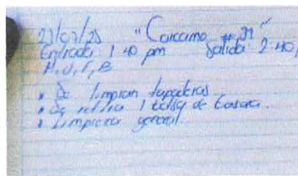 "Carcamo # 21"
Entrada: 1:40 pm Salida: 2:40
H, J, F, B
• Se limpian tapaderas
• Se retira 1 bolsa de basura.
• Limpieza general.